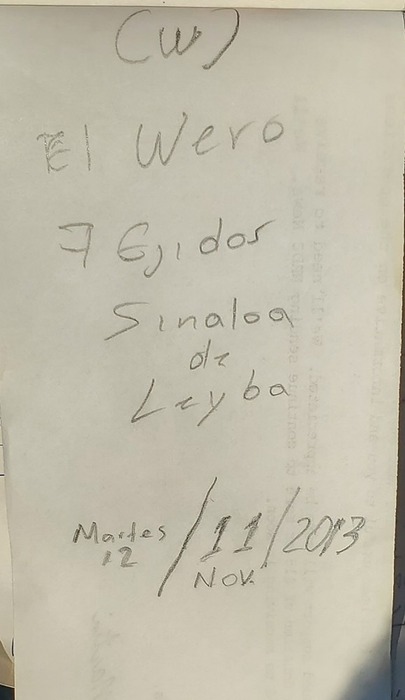 (W)
El Wero
7 Ejidos
Sinaloa
de
Leyba
Martes 12 / 11 Nov. / 2013